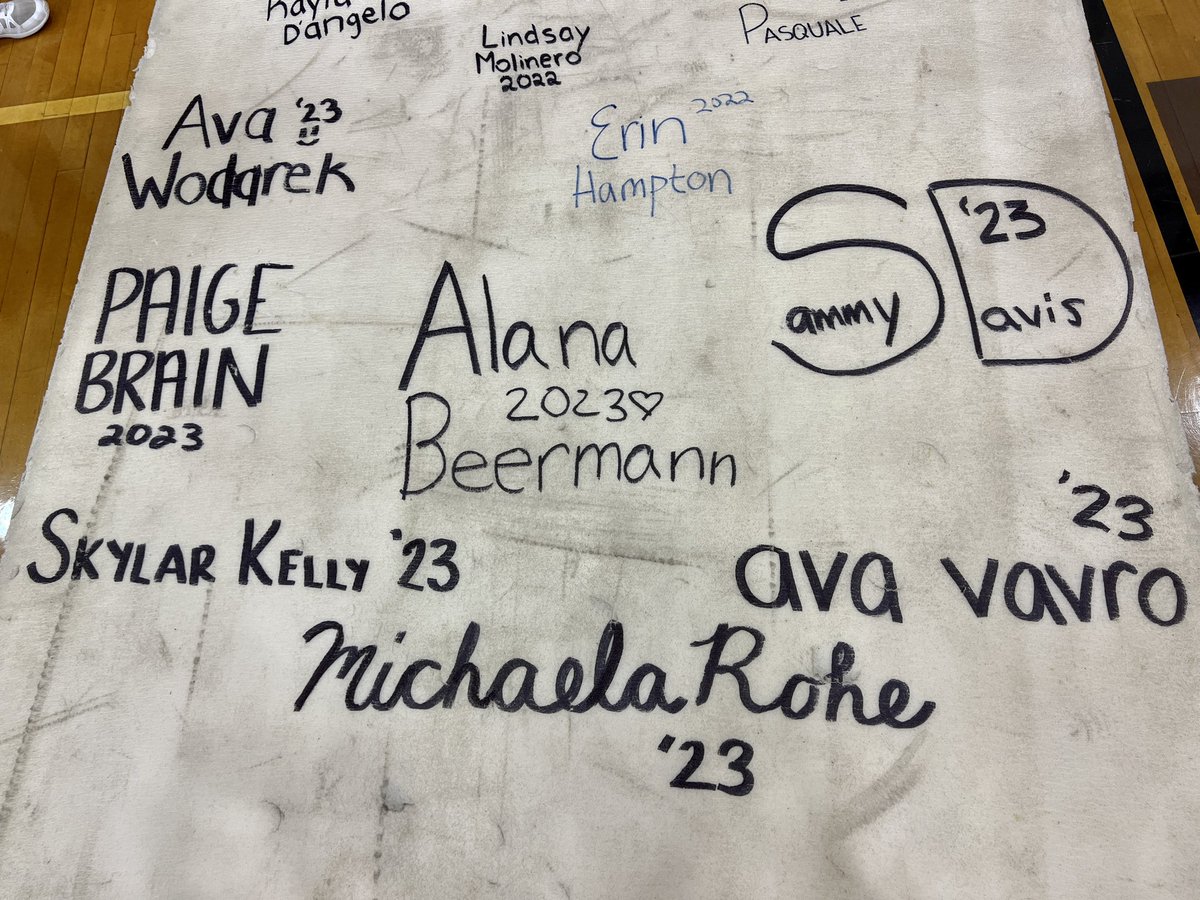 Kayla
D'angelo
Lindsay
Molinero
2022
PASQUALE
Ava '23
Wodarek
Erin 2022
Hampton
Sammy Davis '23
PAIGE
BRAIN
2023
Alana
2023♡
Beermann
SKYLAR KELLY '23
'23
ava vavro
Michaela Rohe
'23